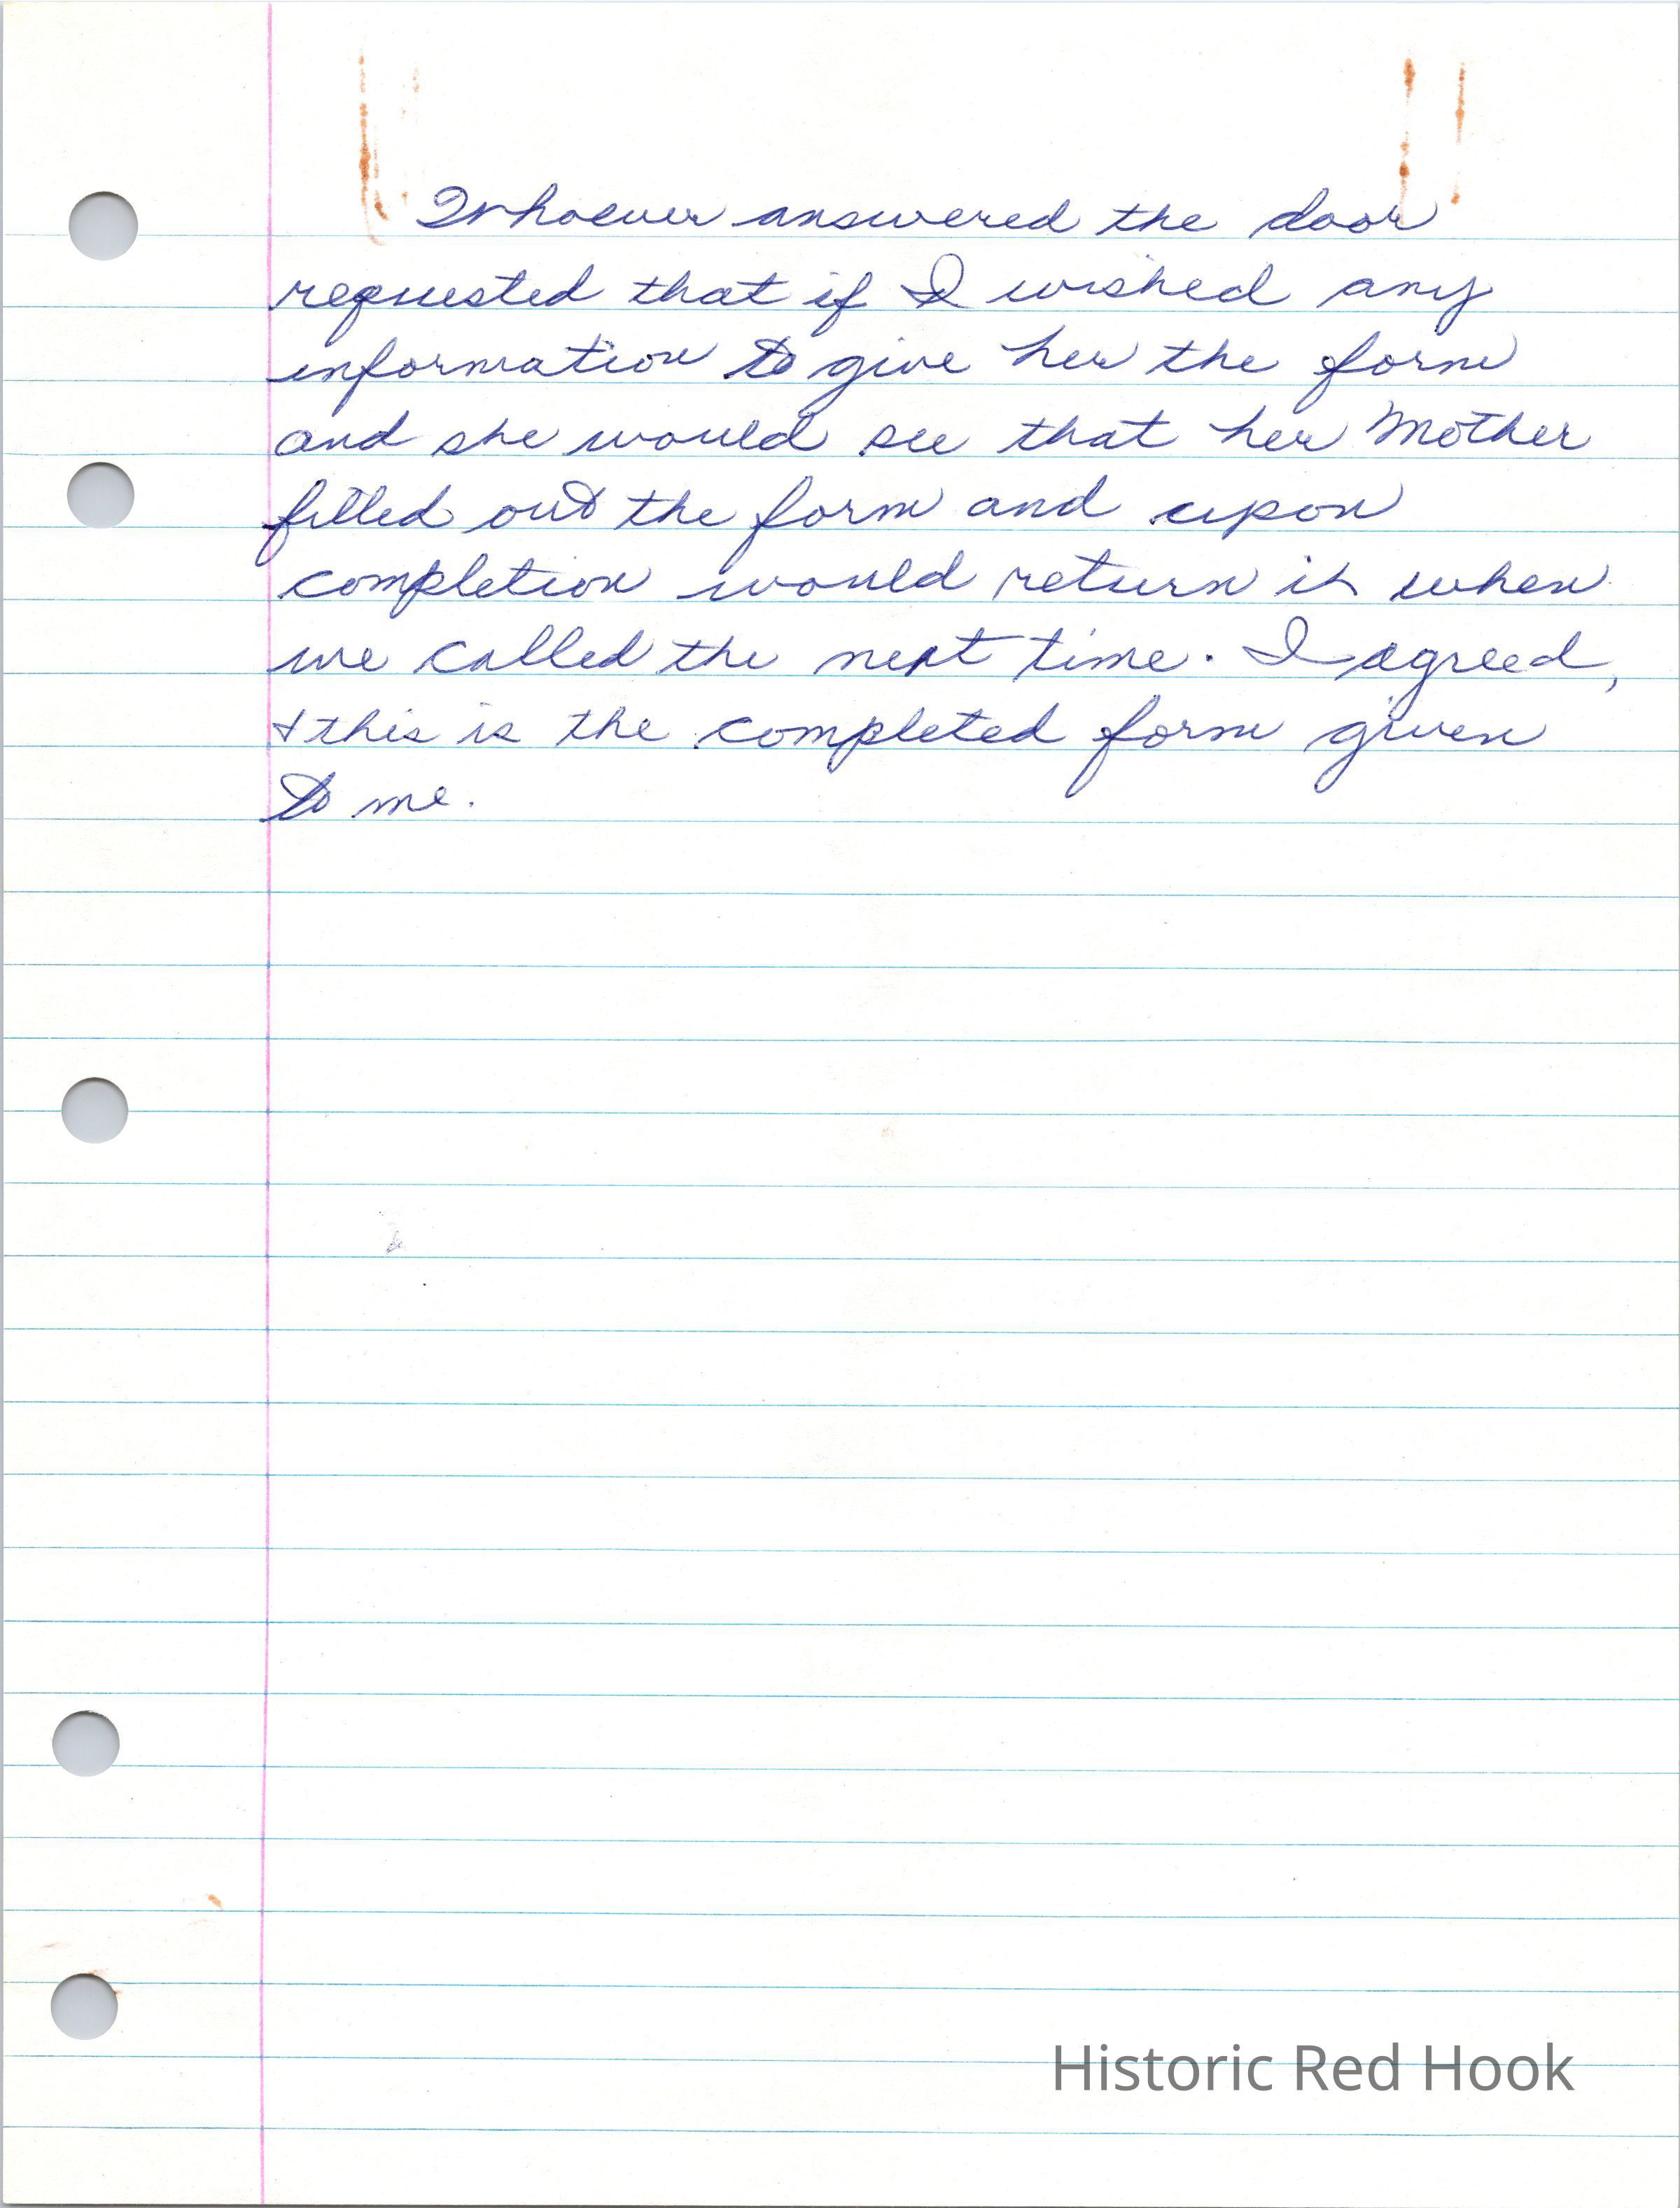 Whoever answered the door
requested that if I wished any
information to give her the form
and she would see that her Mother
filled out the form and upon
completion would return it when
we called the next time. I agreed,
& this is the completed form given
to me.
Historic Red Hook